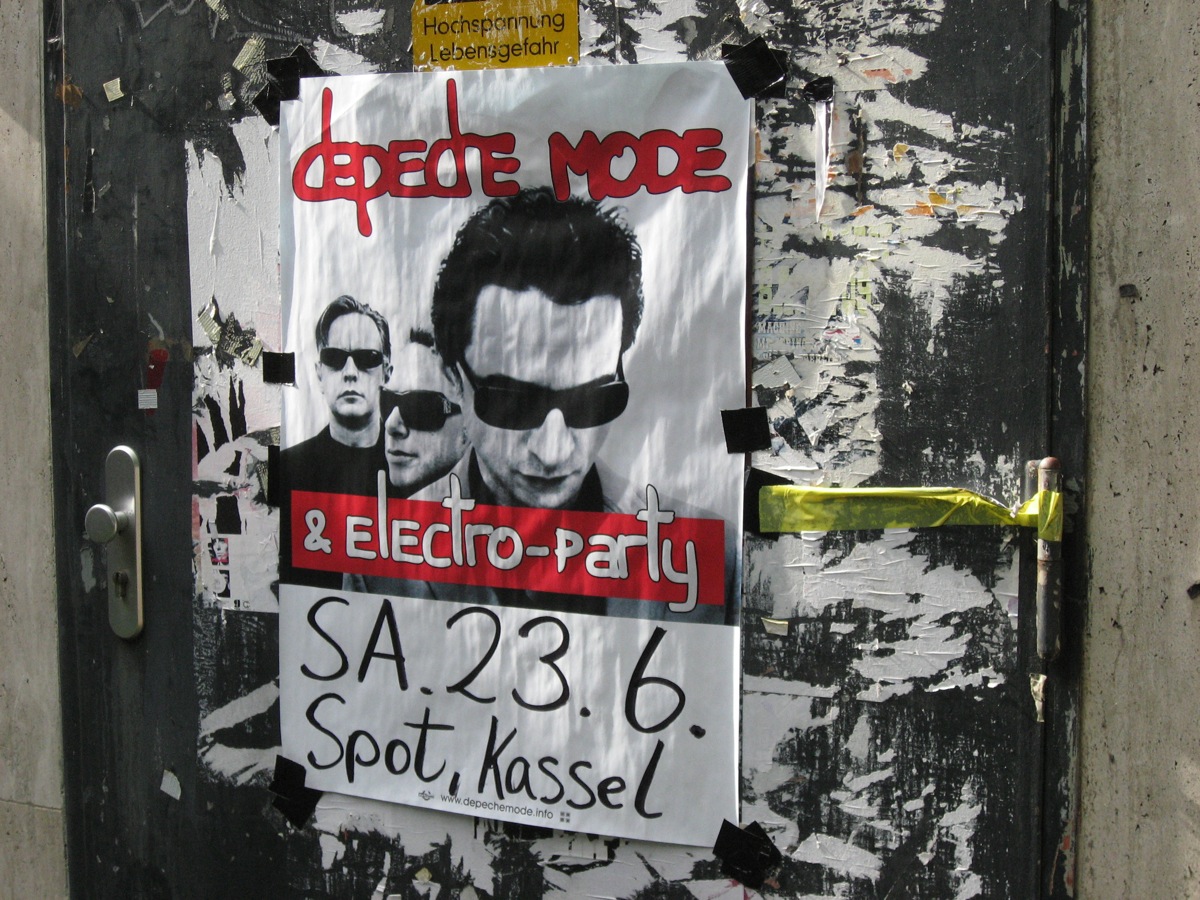 Hochspannung
Lebensgefahr
depeche MODE
& electro-party
SA. 23. 6.
Spot, Kassel
www.depechemode.info